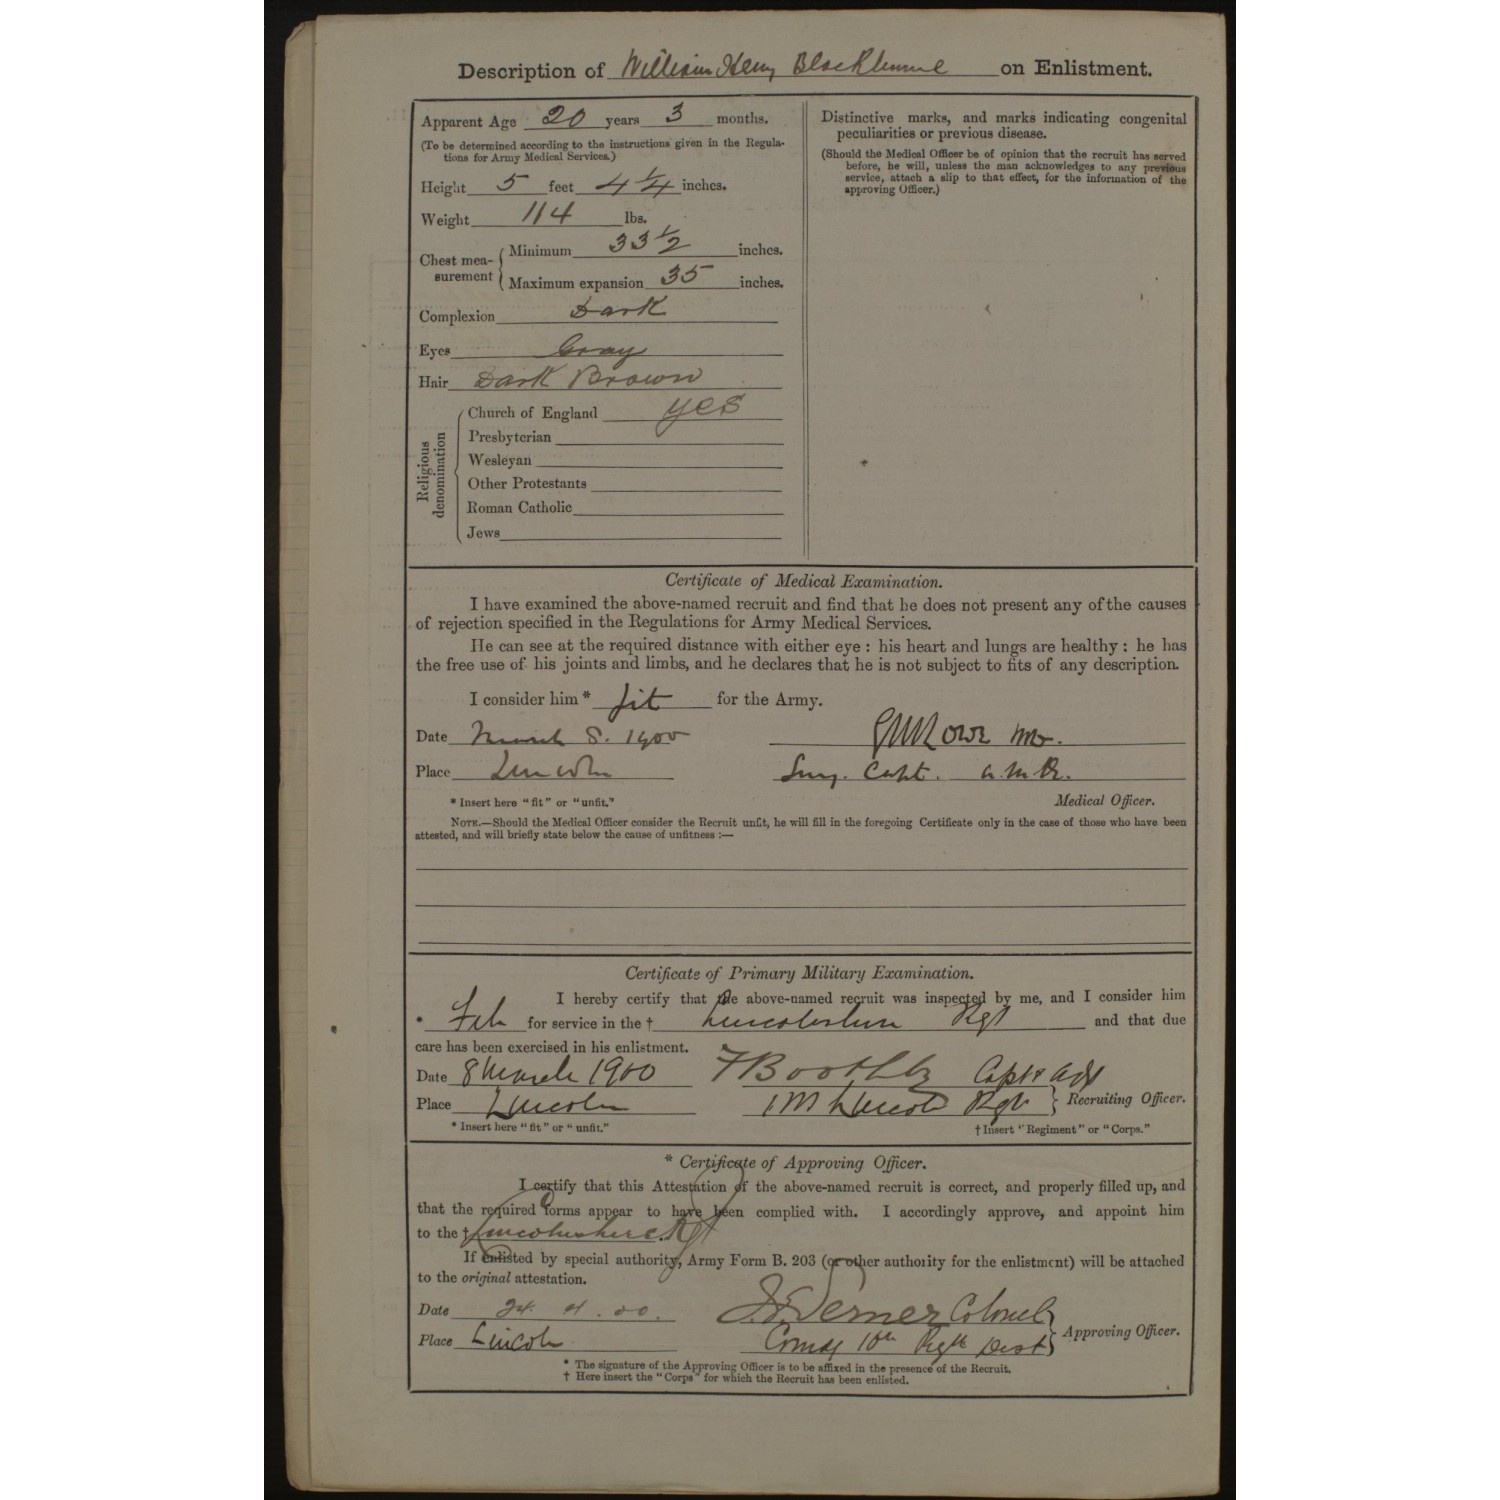 Description of William Henry Blackburne on Enlistment.
Apparent Age 20 years 3 months.
(To be determined according to the instructions given in the Regula-
tions for Army Medical Services.)
Height 5 feet 4 1/4 inches.
Weight 114 lbs.
Chest mea-
surement
Minimum 33 1/2 inches.
Maximum expansion 35 inches.
Complexion Dark
Eyes Gray
Hair Dark Brown
Religious
denomination
Church of England yes
Presbyterian
Wesleyan
Other Protestants
Roman Catholic
Jews
Distinctive marks, and marks indicating congenital
peculiarities or previous disease.
(Should the Medical Officer be of opinion that the recruit has served
before, he will, unless the man acknowledges to any previous
service, attach a slip to that effect, for the information of the
approving Officer.)
Certificate of Medical Examination.
I have examined the above-named recruit and find that he does not present any of the causes
of rejection specified in the Regulations for Army Medical Services.
He can see at the required distance with either eye : his heart and lungs are healthy : he has
the free use of his joints and limbs, and he declares that he is not subject to fits of any description.
I consider him * fit for the Army.
Date March 8. 1900
Place Lincoln Surg. Capt.
* Insert here "fit" or "unfit." Medical Officer.
NOTE.—Should the Medical Officer consider the Recruit unfit, he will fill in the foregoing Certificate only in the case of those who have been
attested, and will briefly state below the cause of unfitness :—
Certificate of Primary Military Examination.
I hereby certify that the above-named recruit was inspected by me, and I consider him
* Fit for service in the † Lincolnshire Rgt and that due
care has been exercised in his enlistment.
Date 8 March 1900 F Boothby Capt & Adjt
Place Lincoln Lincoln Rgt } Recruiting Officer.
* Insert here "fit" or "unfit." † Insert "Regiment" or "Corps."
* Certificate of Approving Officer.
I certify that this Attestation of the above-named recruit is correct, and properly filled up, and
that the required forms appear to have been complied with. I accordingly approve, and appoint him
to the † Lincolnshire Rgt
If enlisted by special authority, Army Form B. 203 (or other authority for the enlistment) will be attached
to the original attestation.
Date Colonel
Place Lincoln Comdg 10th Regtl Dist } Approving Officer.
* The signature of the Approving Officer is to be affixed in the presence of the Recruit.
† Here insert the "Corps" for which the Recruit has been enlisted.